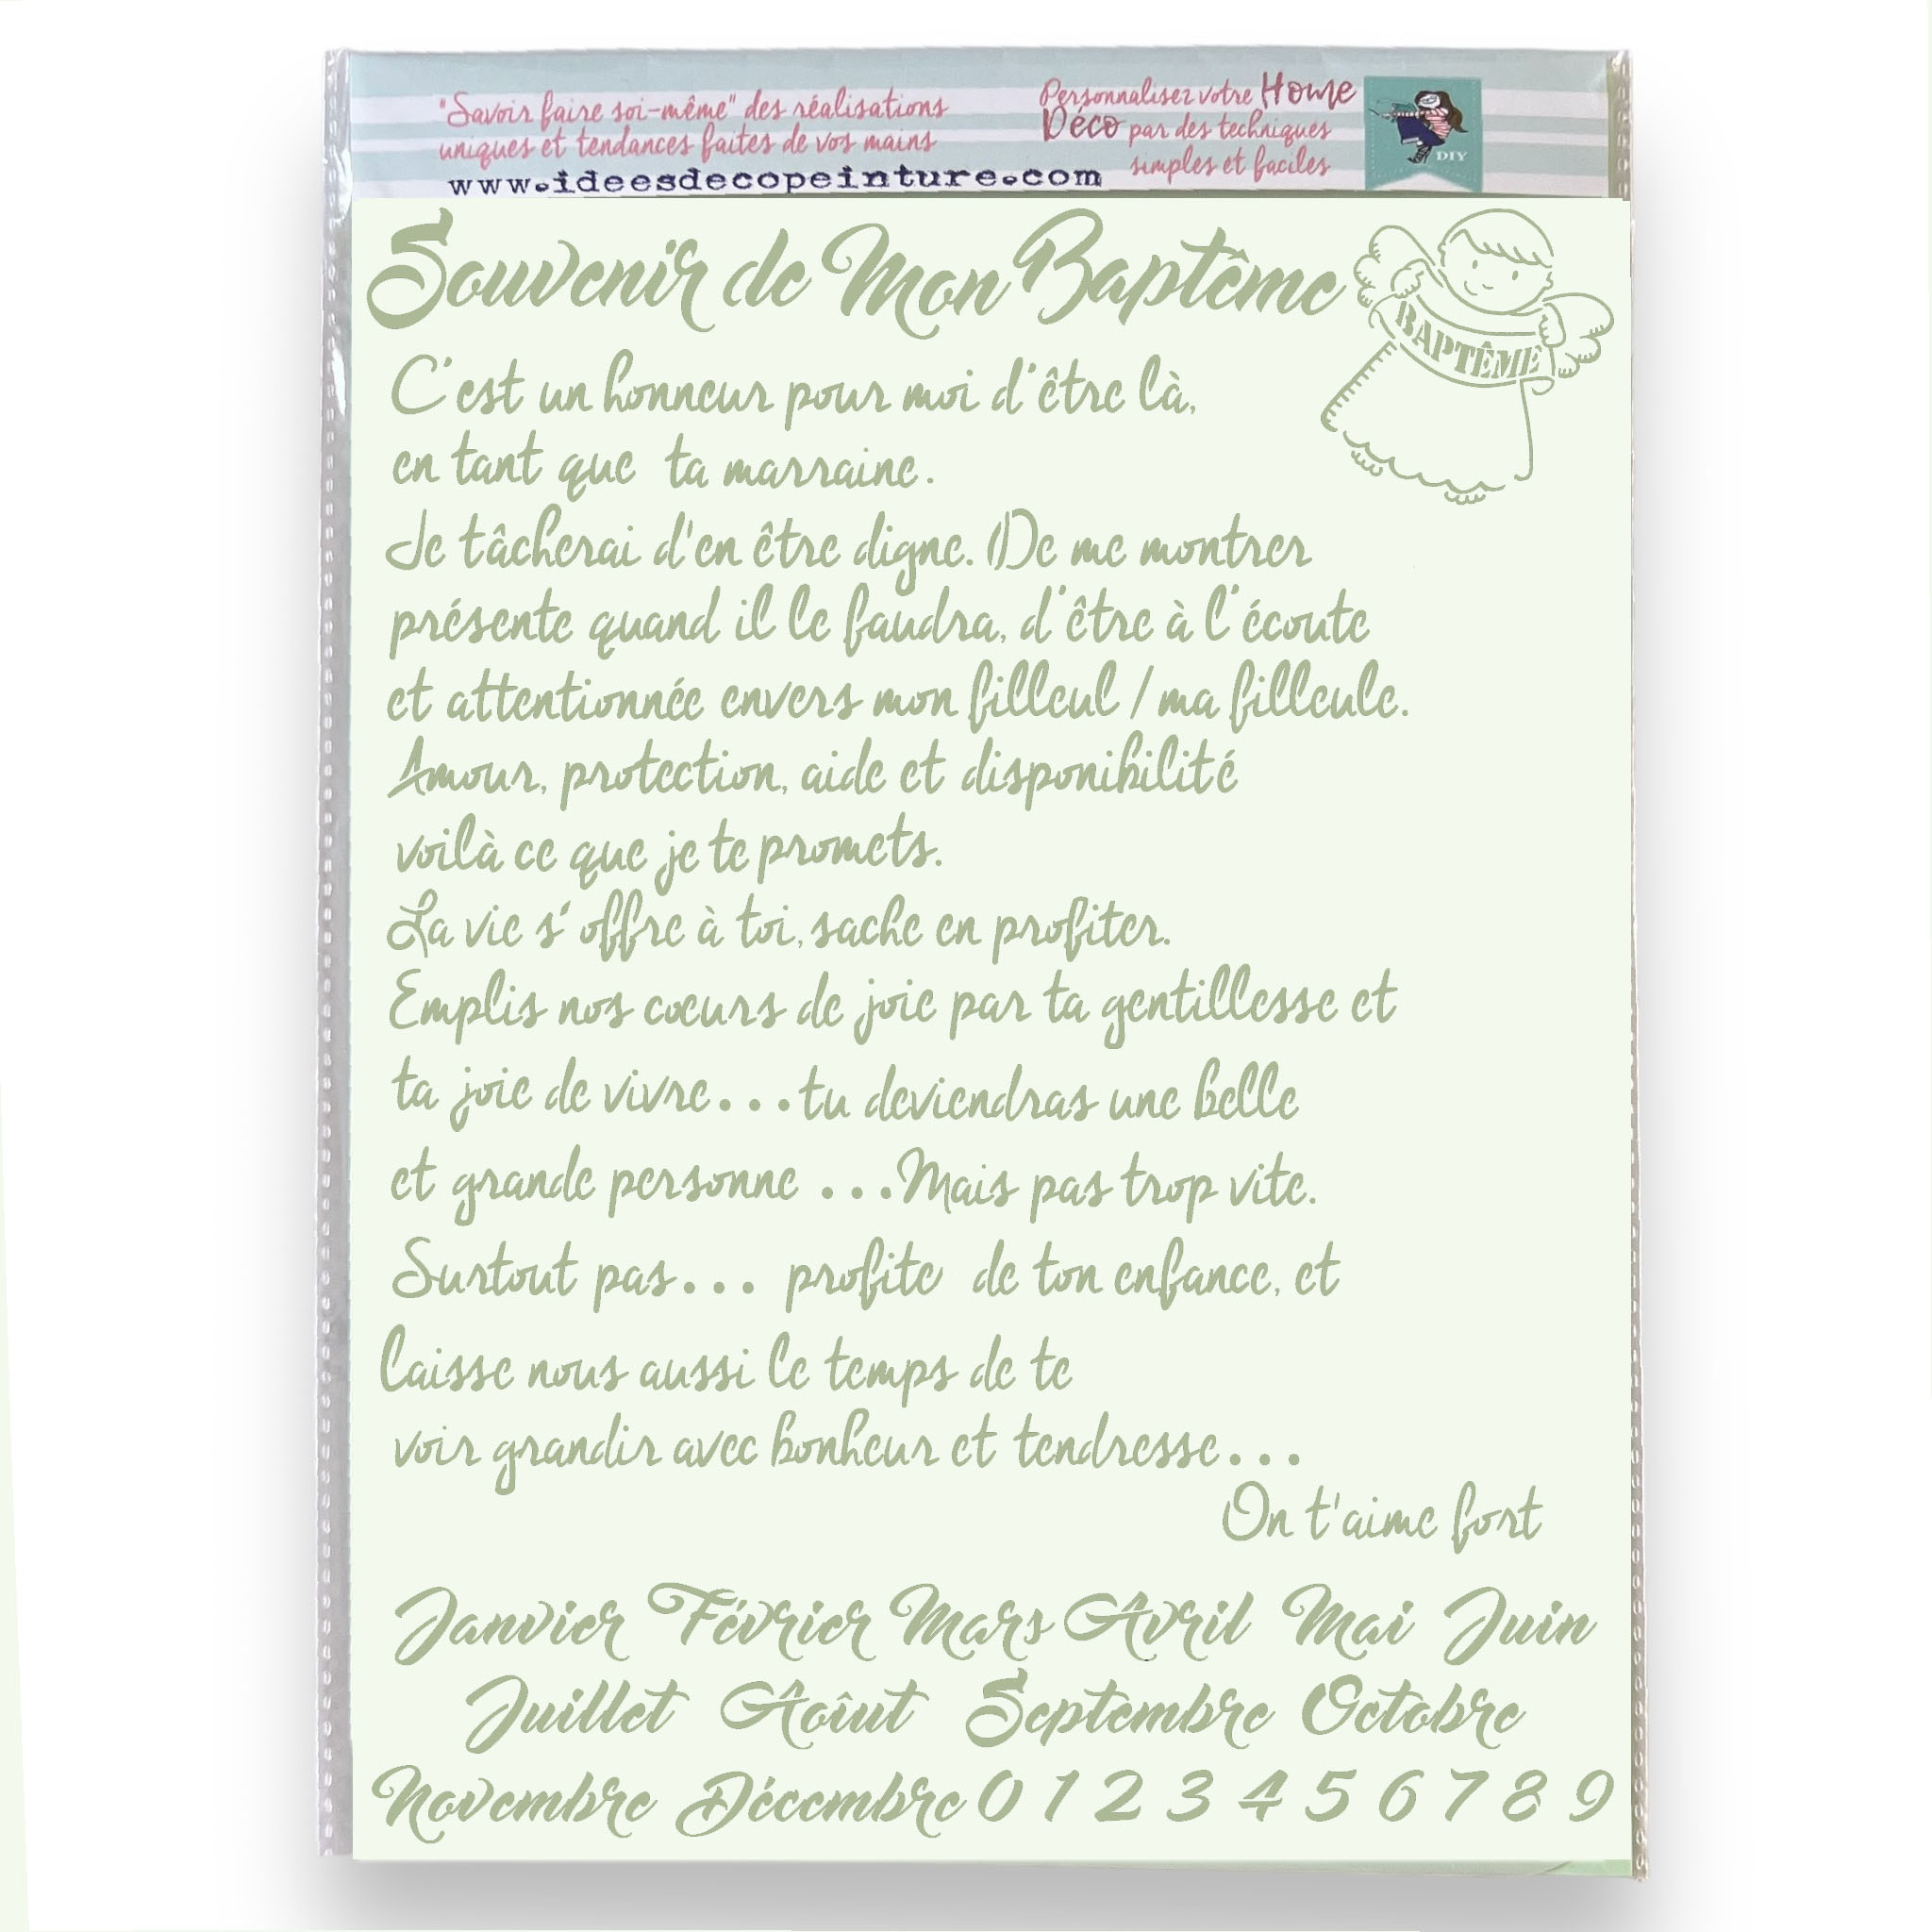 "Savoir faire soi-même" des réalisations
uniques et tendances faites de vos mains
www.ideesdecopeinture.com
Personnalisez votre Home
Déco par des techniques
simples et faciles
DIY
Souvenir de Mon Baptême
BAPTÊME
C'est un honneur pour moi d'être là,
en tant que ta marraine.
Je tâcherai d'en être digne. De me montrer
présente quand il le faudra, d'être à l'écoute
et attentionnée envers mon filleul / ma filleule.
Amour, protection, aide et disponibilité
voilà ce que je te promets.
La vie s'offre à toi, sache en profiter.
Emplis nos cœurs de joie par ta gentillesse et
ta joie de vivre...tu deviendras une belle
et grande personne ...Mais pas trop vite.
Surtout pas... profite de ton enfance, et
laisse nous aussi le temps de te
voir grandir avec bonheur et tendresse...
On t'aime fort
Janvier Février Mars Avril Mai Juin
Juillet Aoîut Septembre Octobre
Novembre Décembre 0 1 2 3 4 5 6 7 8 9